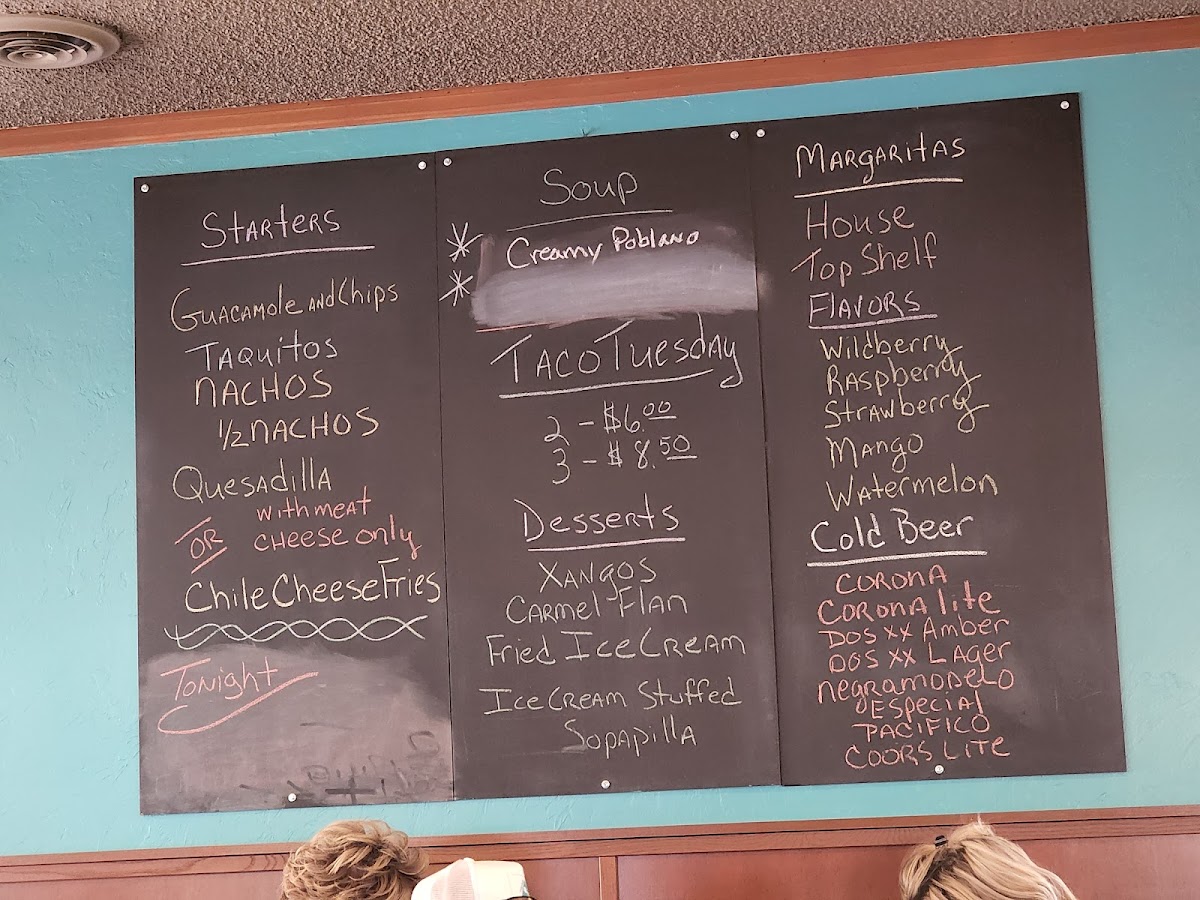 Starters
Guacamole and Chips
Taquitos
Nachos
1/2 Nachos
Quesadilla
with meat
OR cheese only
Chile Cheese Fries
Tonight
Soup
Creamy Poblano
Taco Tuesday
2 - $6.00
3 - $8.50
Desserts
Xangos
Carmel Flan
Fried Ice Cream
Ice Cream Stuffed
Sopapilla
Margaritas
House
Top Shelf
Flavors
Wildberry
Raspberry
Strawberry
Mango
Watermelon
Cold Beer
Corona
Corona lite
Dos xx Amber
Dos xx Lager
negramodelo
Especial
Pacifico
Coors Lite